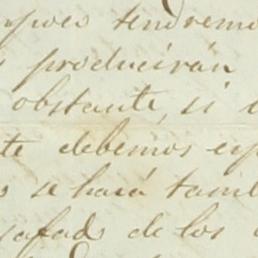 tendremo
producirán
obstante, si
te debemos esp
se hará tamb
de los